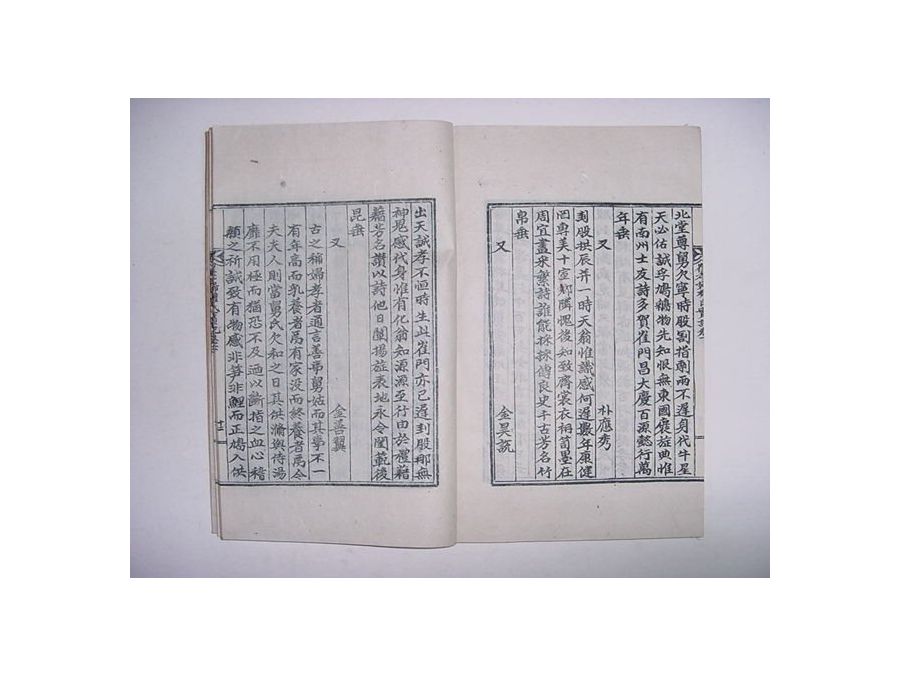 北堂尊舅欠寧時股割指剌兩不遲身代牛星
天必佑誠孚鳩鵝物先知恨無東國褒旌典惟
有南州士友詩多賀崔門昌大慶百源懿行萬
年垂
又 朴應秀
刲股拱辰并一時天翁惟識感何遲數年康健
四專美十室鄉隣愧後知致齊裳衣稱筥墨在
周宜盡采蘩詩誰能採採傳良史千古芳名竹
帛垂
又 金昊説
出天誠孝不恒時生此崔門亦已遲刲股那無
神鬼感代身惟有化翁知源源至行由於禮藉
藉芳名讚以詩他日闡揚旌表地永令閨範後
昆垂
又 金善翼
古之稱婦孝者通言善事舅姑而其學不一
有年高而乳養者焉有家没而終養者焉令
夫夫人則當舅氏欠和之日其供瀡與侍湯
靡不用極而猶恐不及迺以斷指之血心稽
顙之所誠致有物感非笋非鯉而正鳩入供